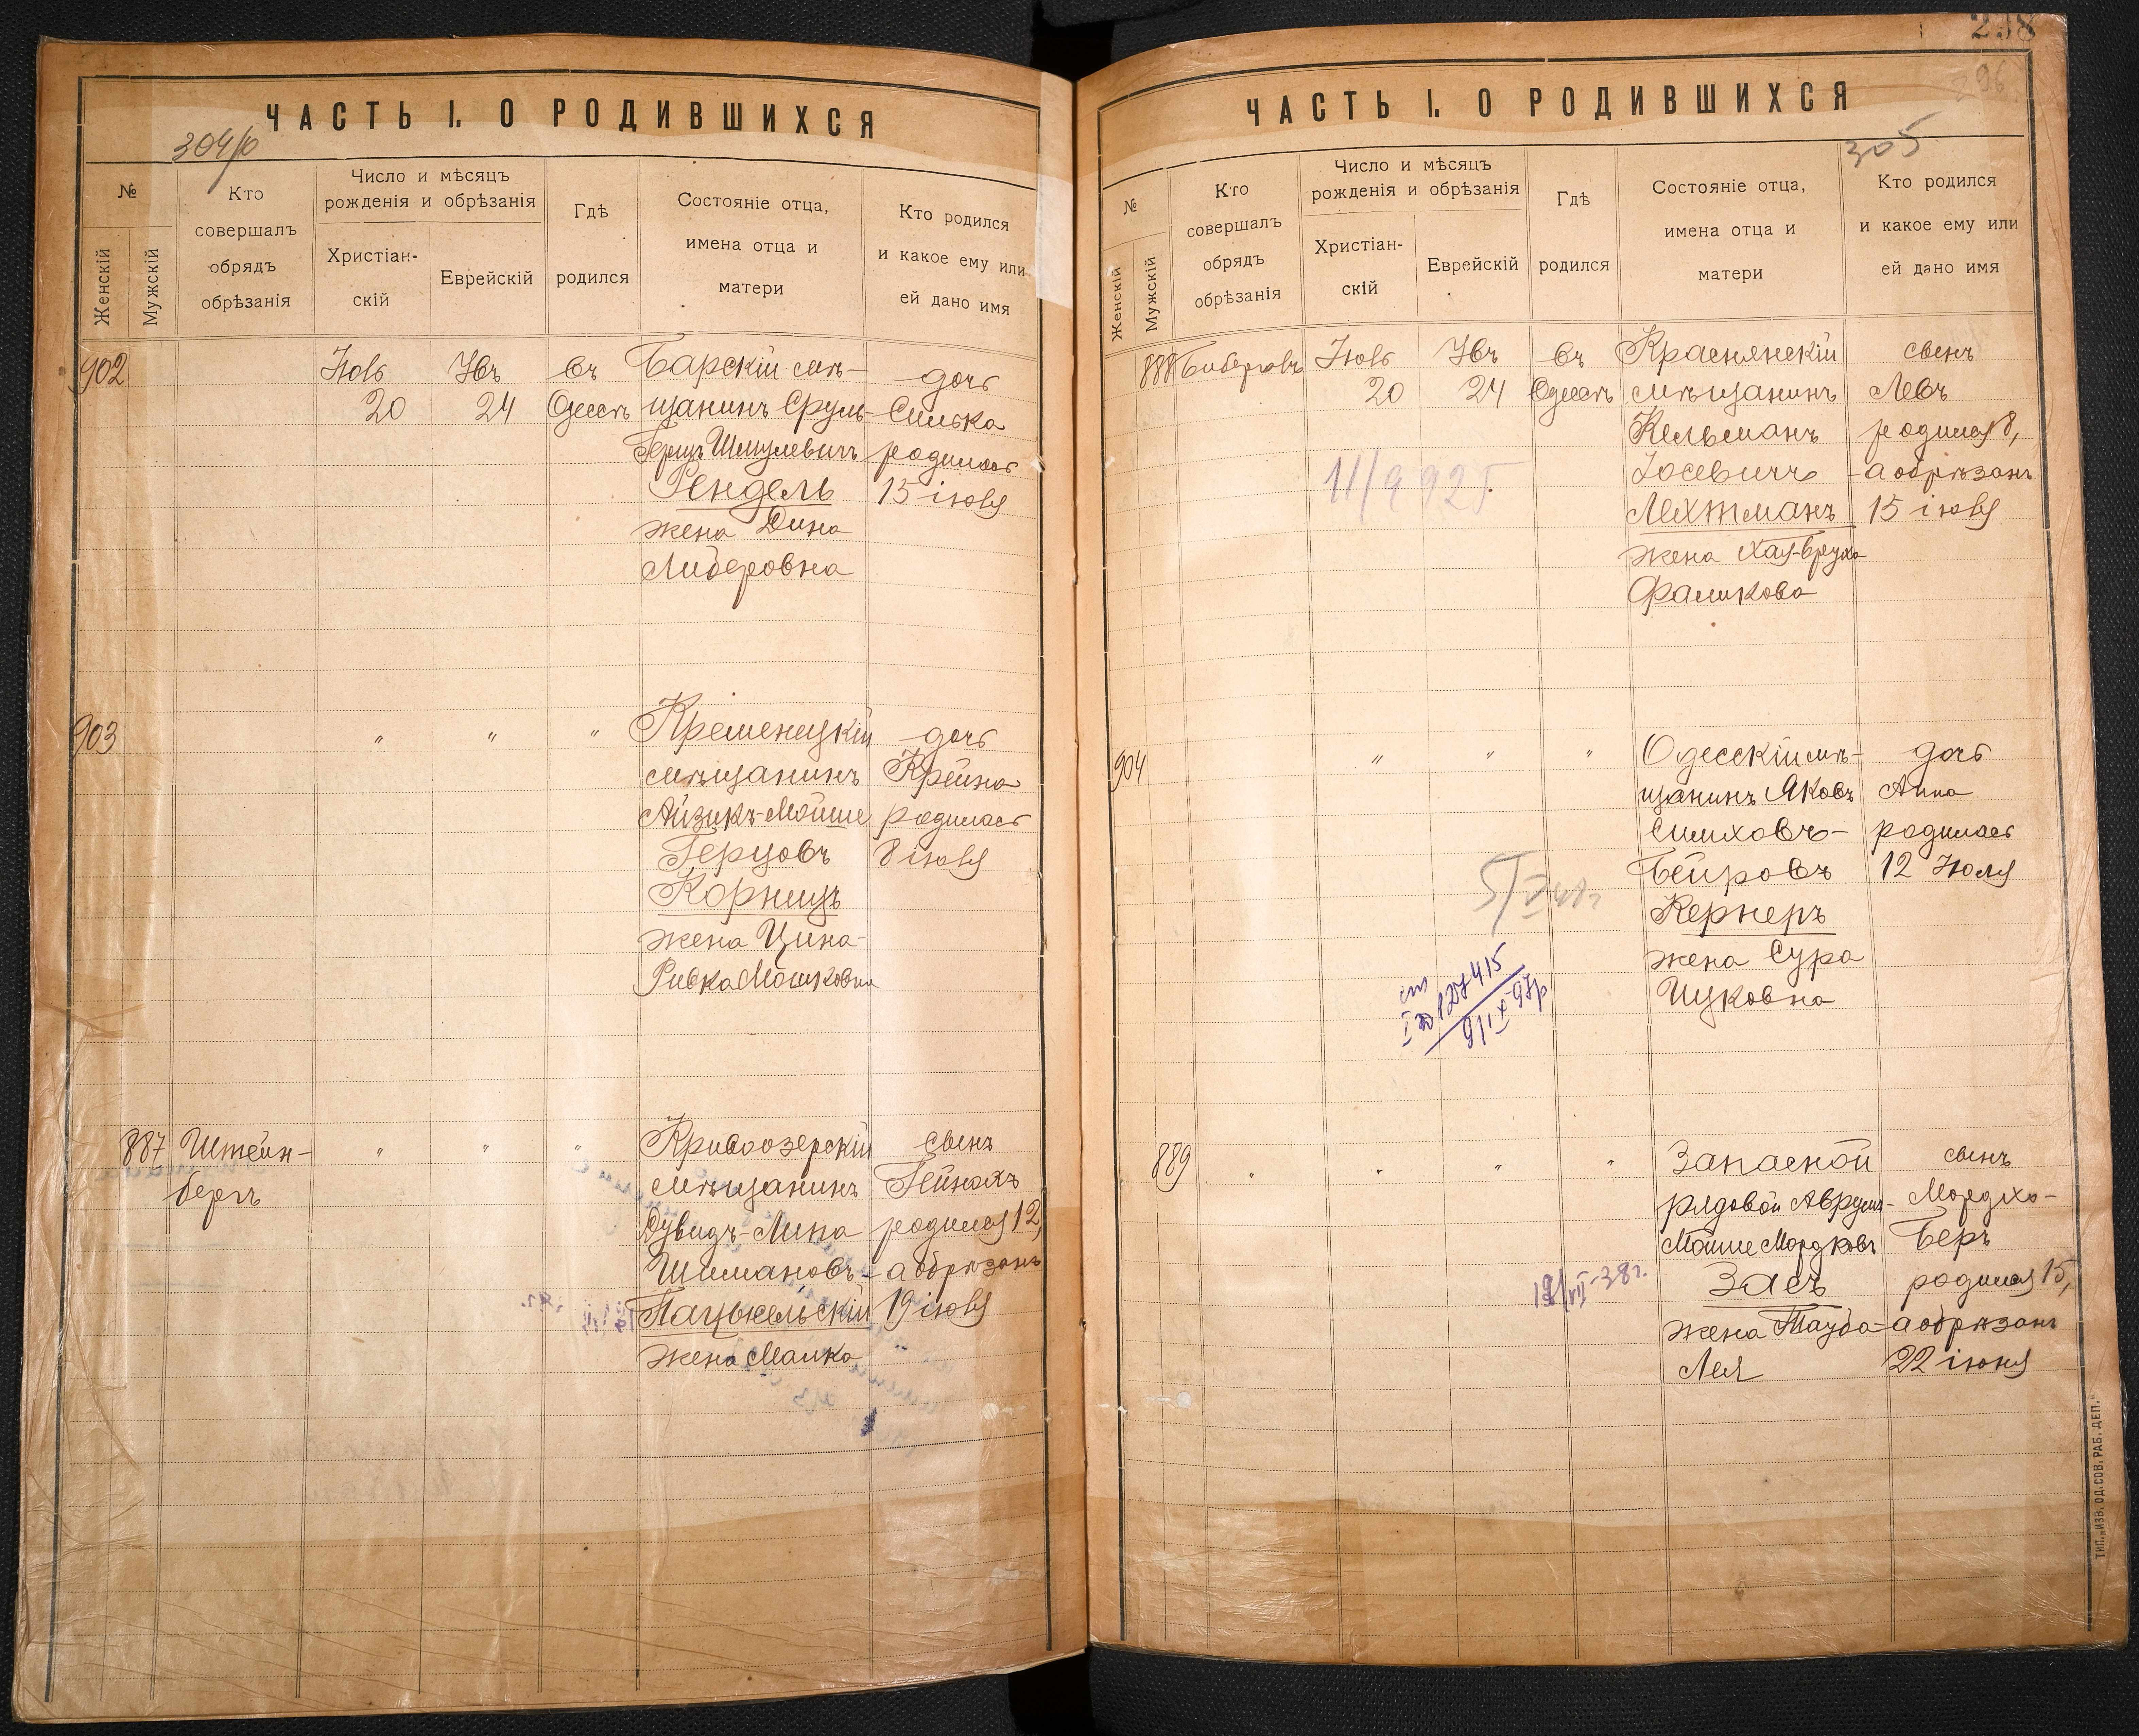 ЧАСТЬ I. О РОДИВШИХСЯ
304/б
№
Женскій
Мужскій
Кто
совершалъ
обрядъ
обрѣзанія
Число и мѣсяцъ
рожденія и обрѣзанія
Христіан-
скій
Еврейскій
Гдѣ
родился
Состояніе отца,
имена отца и
матери
Кто родился
и какое ему или
ей дано имя
902
Іюль
20
24
въ
Одессѣ
Барскій мѣ-
щанинъ Сруль-
Герцъ Шмулевичъ
Гендель
жена Дина
Либеровна
дочь
Симка
родилась
15 іюля
903
" " "
Кременецкій
мѣщанинъ
Айзикъ-Мойше
Герцовъ
Корницъ
жена Цина-
Ривка Мошковна
дочь
Крейна
родилась
8 іюля
887
Штейн-
бергъ
" " "
Кривоозерскій
мѣщанинъ
Дувидъ-Липа
Шимановъ-
Пацькельскій
жена Малка
сынъ
Гейнахъ
родился 12,
а обрѣзанъ
19 іюля
238
296
ЧАСТЬ I. О РОДИВШИХСЯ
305
№
Женскій
Мужскій
Кто
совершалъ
обрядъ
обрѣзанія
Число и мѣсяцъ
рожденія и обрѣзанія
Христіан-
скій
Еврейскій
Гдѣ
родился
Состояніе отца,
имена отца и
матери
Кто родился
и какое ему или
ей дано имя
888
Іюль
20
24
въ
Одессѣ
Краснянскій
мѣщанинъ
Кельманъ
Іосевичъ
Лехтманъ
жена Хая-Бруха
Фаликова
сынъ
Левъ
родился 8,
а обрѣзанъ
15 іюля
904
" " "
Одесскій мѣ-
щанинъ Яковъ
Симховъ-
Бейровъ
Кернеръ
жена Сура
Ицковна
дочь
Анна
родилась
12 Іюля
127415
889
" " " "
Запасной
рядовой Аврумъ-
Мойше Мордковъ
Засъ
жена Тауба-
Лея
сынъ
Мордхо-
Беръ
родился 15,
а обрѣзанъ
22 іюля
ТИП. „ИЗВ. ОД. СОВ. РАБ. ДЕП."